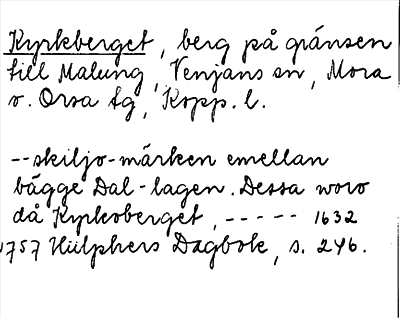 Kyrkberget, berg på gränsen
till Malung, Venjans sn, Mora
o. Orsa tg, Kopp. l.
--skiljo-märken emellan
bägge Dal-lagen. Dessa woro
då Kyrkoberget, ----- 1632
1757 Hülphers Dagbok, s. 246.